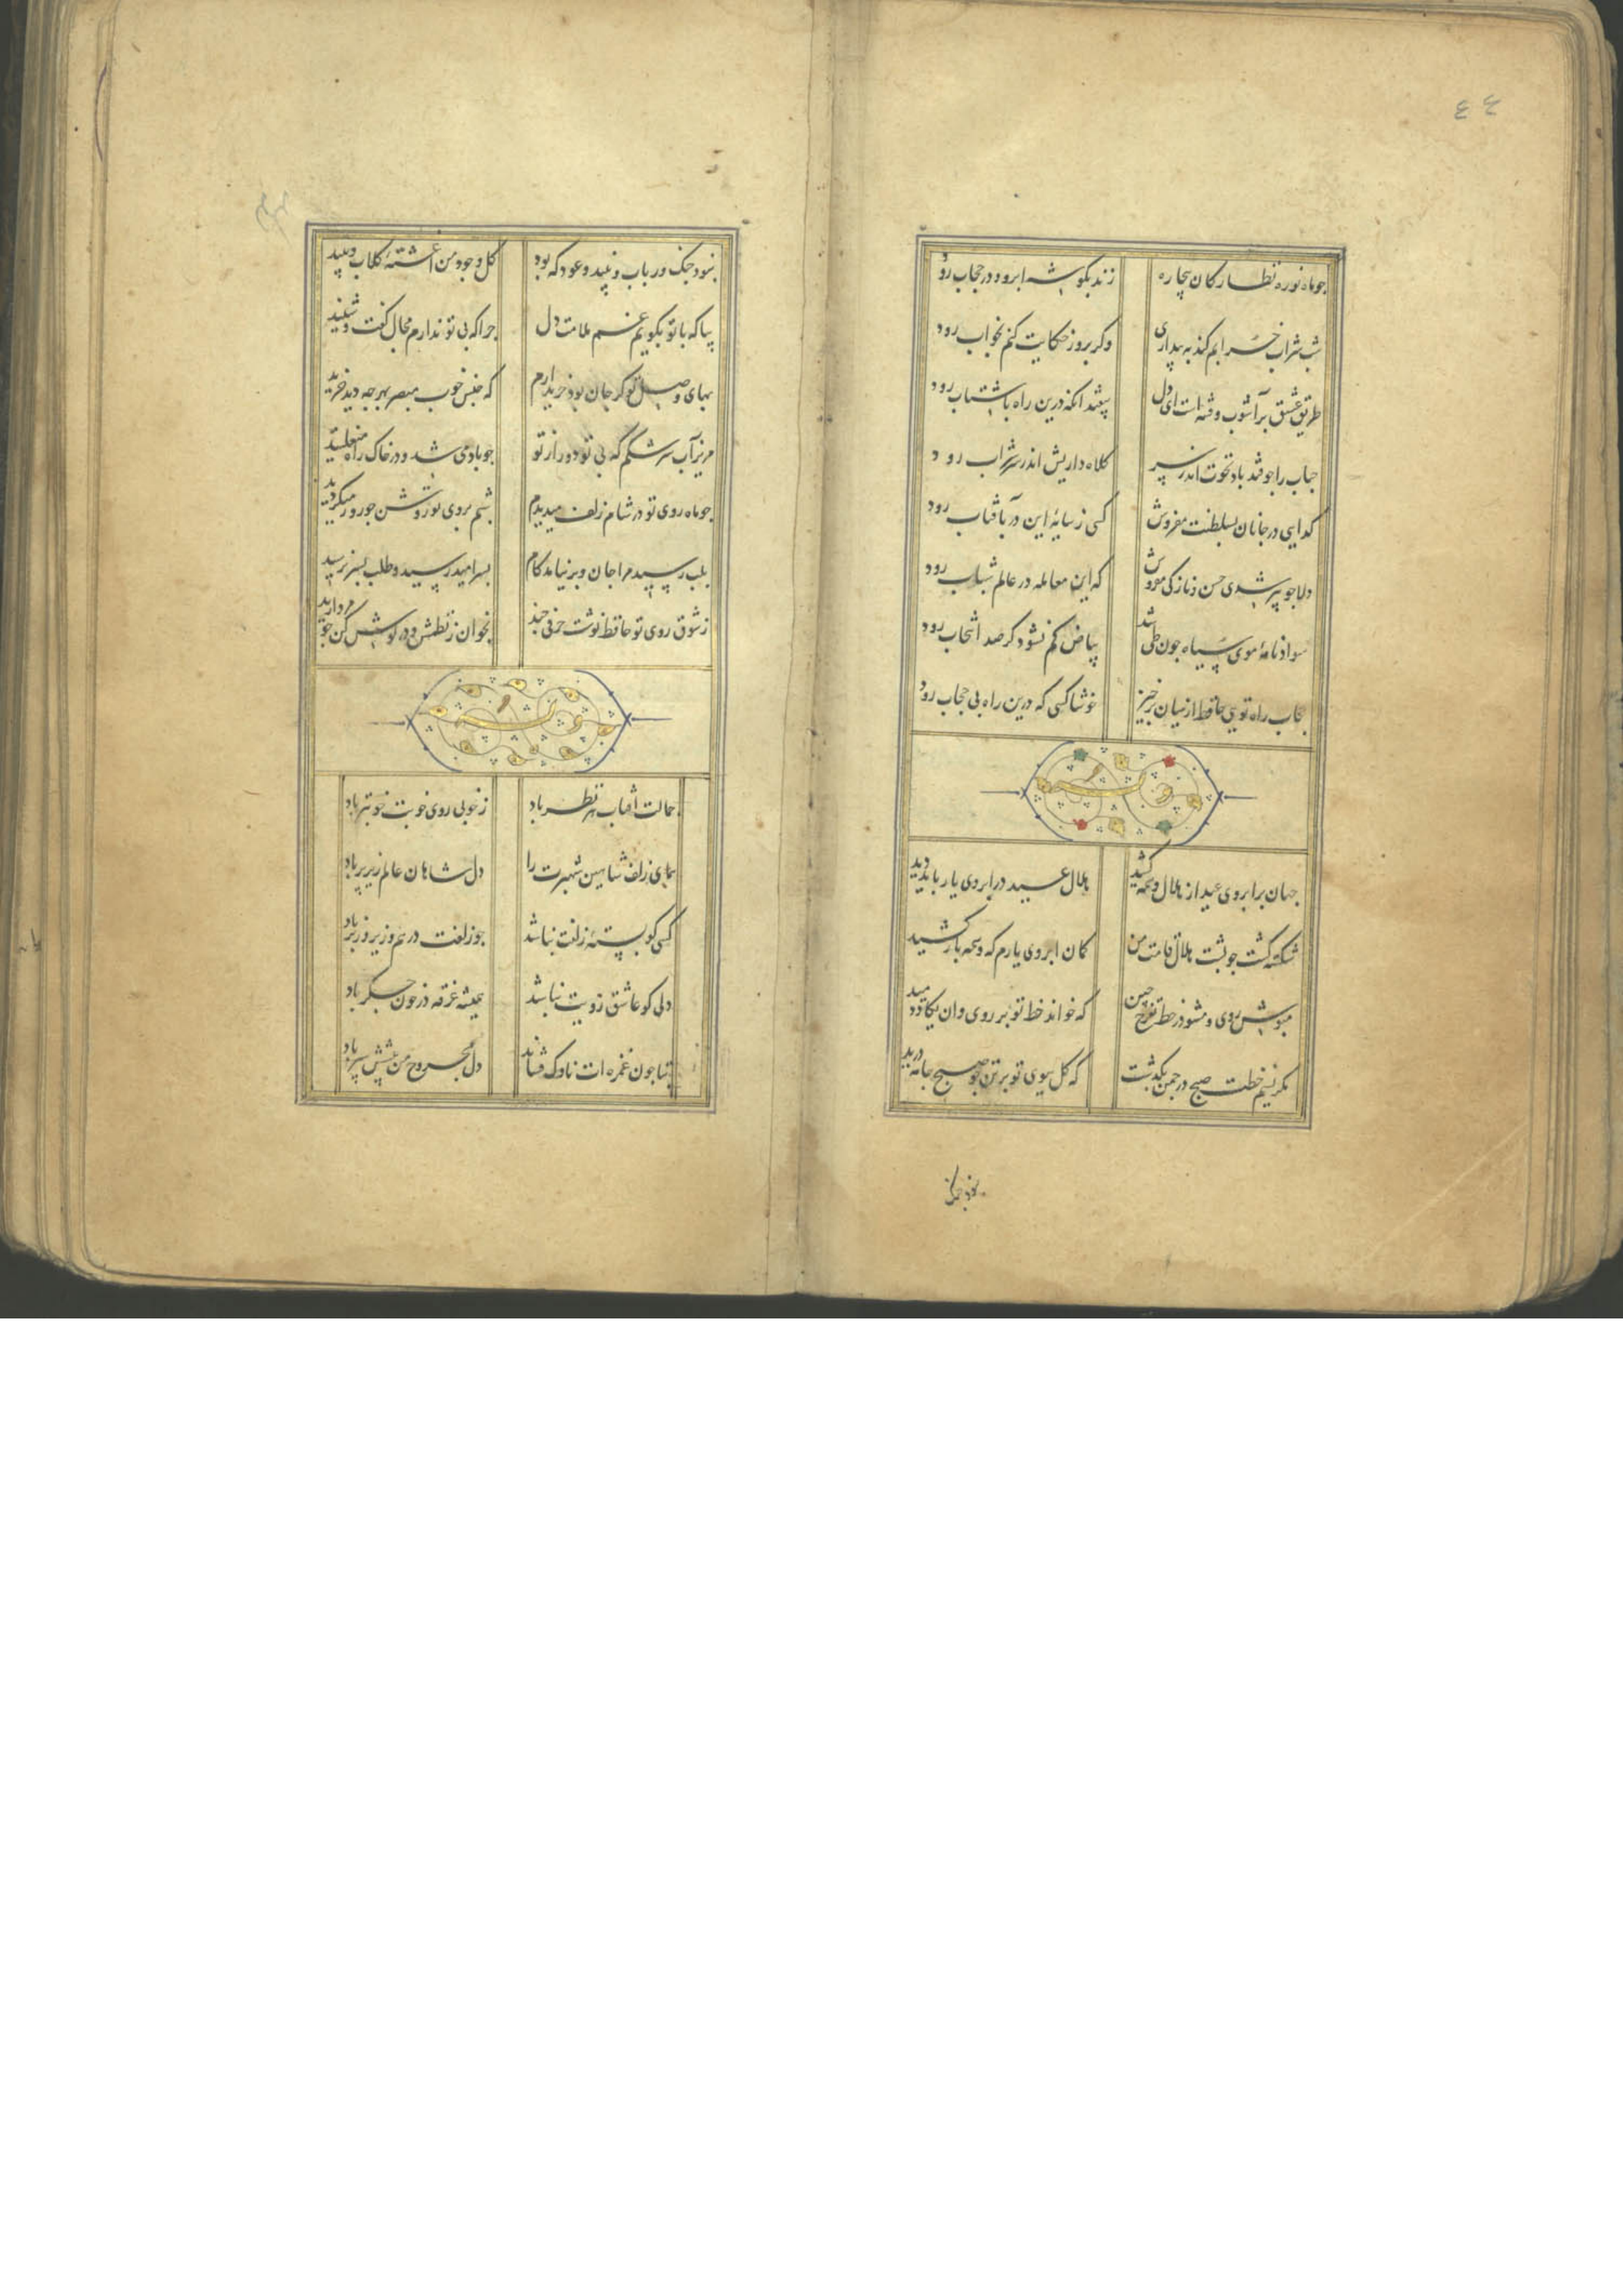 ٤٤
جو ماه نو ره نظارکان بیچاره
زند بکوشه ابرو و در حجاب رود
شب شراب خرابم کند به بیداری
وکر بروز حکایت کنم بخواب رود
طریق عشق بر آشوب و فتنه است ای دل
بیفتد آنکه درین راه با شتاب رود
حباب را جو فتد باد نخوت اندر سر
کلاه داریش اندر سر شراب رود
کدایی در جانان بسلطنت مفروش
کسی ز سایهٔ این در بآفتاب رود
دلا جو پیر شدی حسن و نازکی مفروش
که این معامله در عالم شباب رود
سواد نامهٔ موی سیاه جون طی شد
بیاض کم نشود کر صد انتخاب رود
حجاب راه تویی حافظ از میان برخیز
خوشا کسی که درین راه بی حجاب رود
وله ایضا
جهان بر ابروی عید از هلال وسمه کشید
هلال عید در ابروی یار باید دید
شکسته کشت جو پشت هلال قامت من
کمان ابروی یارم که وسمه باز کشید
مپوش روی و مشو در خط تفرج
که خواند خط تو بر روی و ان یکاد و دمید
مکر نسیم خطت صبح در جمن بکذشت
که کل ببوی تو بر تن جو صبح جامه درید
نبود جنک
نبود جنک و رباب و نبید و عود که بود
کل وجود من آغشتهٔ کلاب و نبید
بیا که با تو بکویم غم ملامت دل
جرا که بی تو ندارم مجال کفت و شنید
بهای وصل تو کر جان بود خریدارم
که جنس خوب مبصر بهر جه دید خرید
مریز آب سرشکم که بی تو دور از تو
جو بادمی شد و در خاک راه
جو ماه روی تو در شام زلف میدیدم
شبم بروی تو روشن جو روز میکردید
بلب رسید مرا جان و بر نیامد کام
بسر امید رسید و طلب بسر نرسید
ز شوق روی تو حافظ نوشت حرفی جند
بخوان ز نظمش و در کوش کن جو مروارید
وله ایضا
جمالت آفتاب هر نظر باد
ز خوبی روی خوبت خوبتر باد
همای زلف شاهین شهپرت را
دل شاهان عالم زیر پر باد
کسی کو بستهٔ زلفت نباشد
جو زلفت درهم و زیر و زبر باد
دلی کو عاشق رویت نباشد
همیشه غرقه در خون جکر باد
بتا جون غمزه ات ناوک فشاند
دل مجروح من پیشش سپر باد